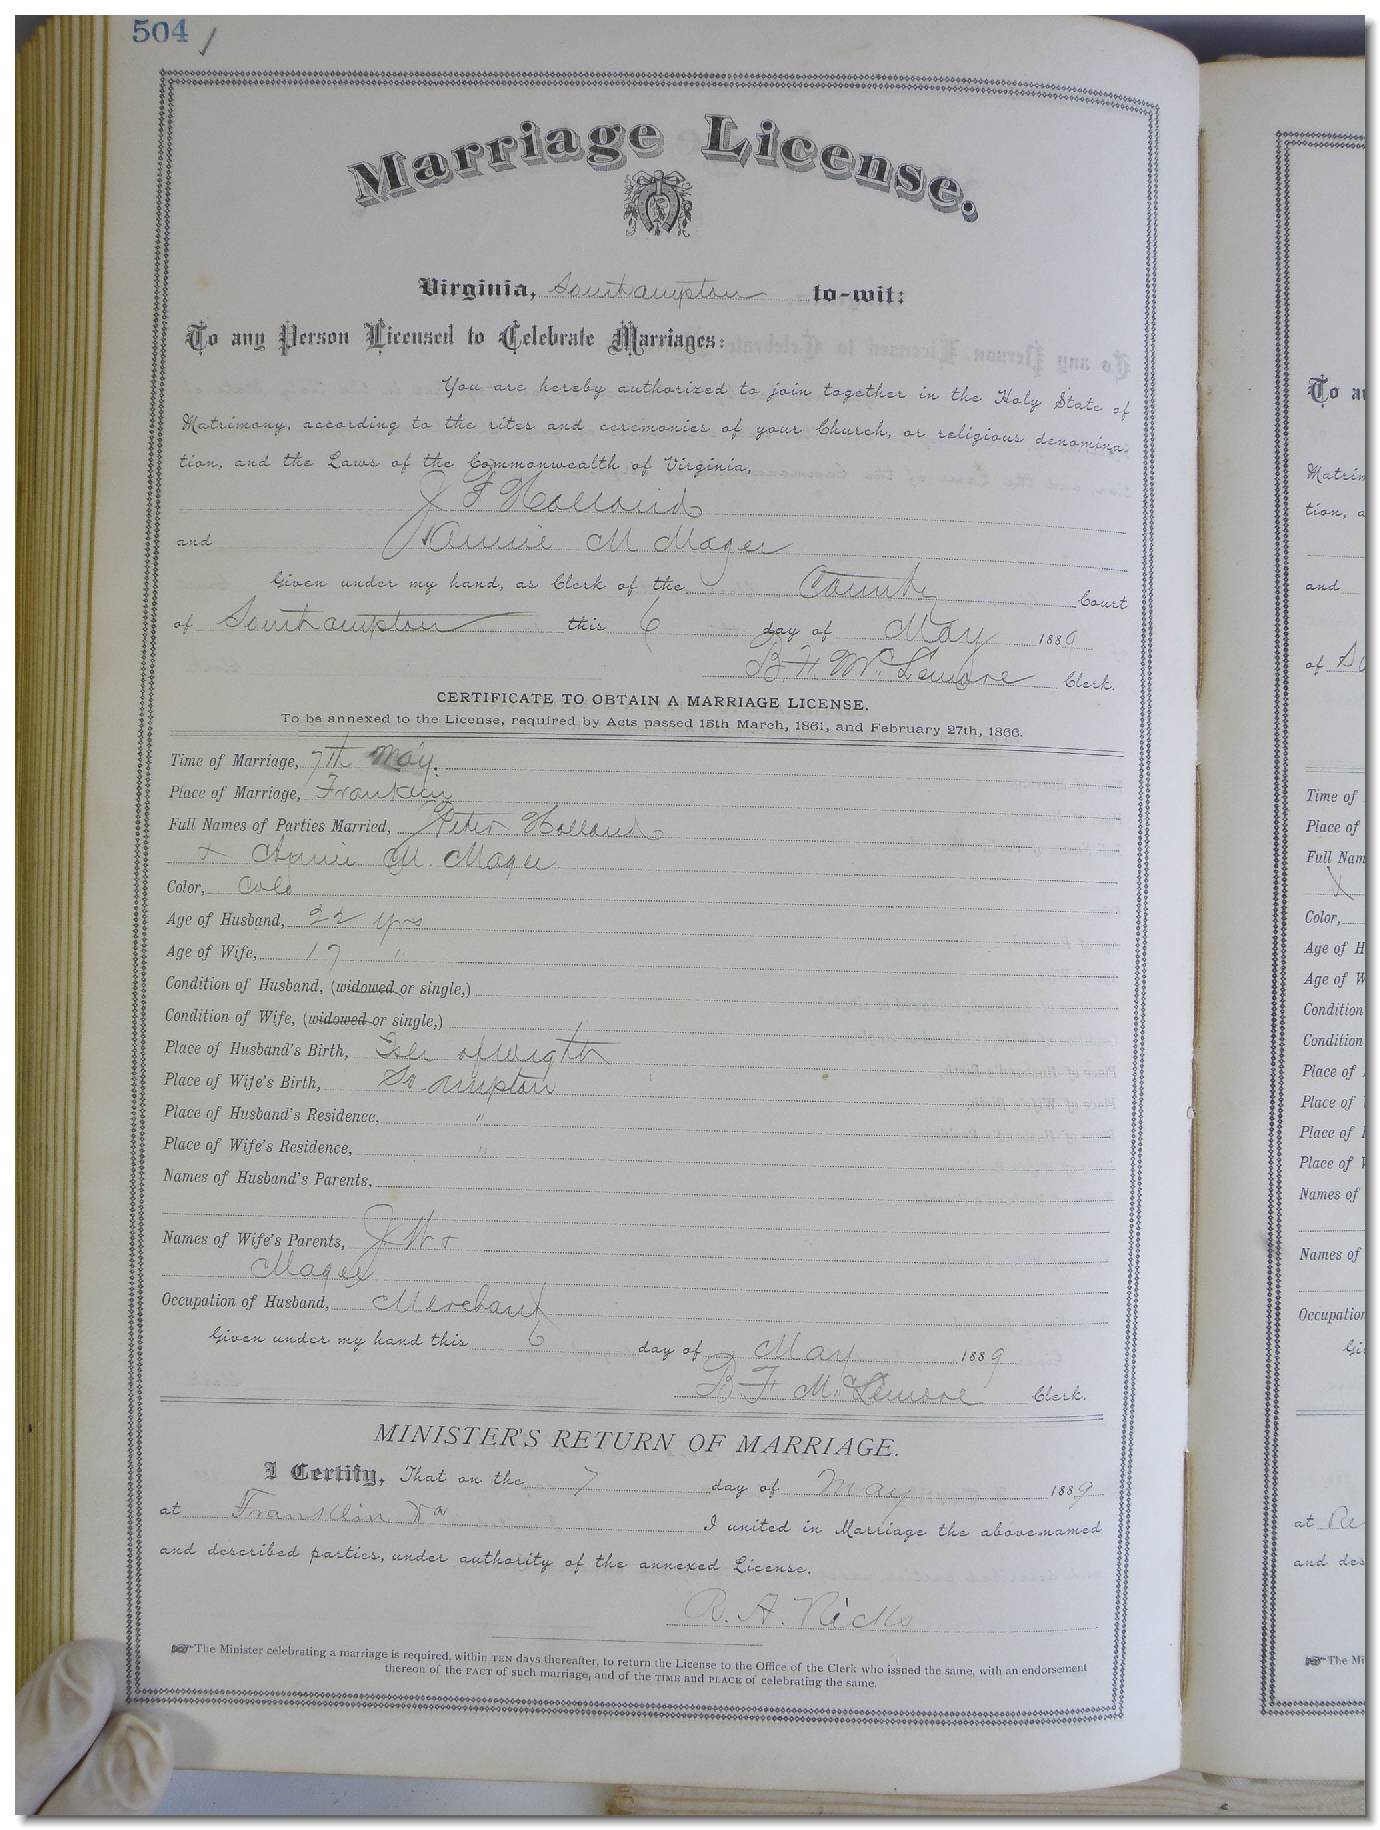 504
Marriage License.
Virginia, Southampton to-wit:
To any Person Licensed to Celebrate Marriages:
You are hereby authorized to join together in the Holy State of
Matrimony, according to the rites and ceremonies of your Church, or religious denomina-
tion, and the Laws of the Commonwealth of Virginia,
Holland
and Annie M Magee
Given under my hand, as Clerk of the County Court
of Southampton this 6 day of May 1889
B. F. McLemore Clerk.
CERTIFICATE TO OBTAIN A MARRIAGE LICENSE.
To be annexed to the License, required by Acts passed 15th March, 1861, and February 27th, 1866.
Time of Marriage, 7th May.
Place of Marriage, Franklin
Full Names of Parties Married, Peter Holland
& Annie M. Magee
Color, Cold
Age of Husband, 22 yrs
Age of Wife, 17 "
Condition of Husband, (widowed or single,)
Condition of Wife, (widowed or single,)
Place of Husband's Birth, Isle of Wight
Place of Wife's Birth, So ampton
Place of Husband's Residence, "
Place of Wife's Residence, "
Names of Husband's Parents,
Names of Wife's Parents, J W &
Magee
Occupation of Husband, Merchant
Given under my hand this 6 day of May 1889
B. F. McLemore Clerk.
MINISTER'S RETURN OF MARRIAGE.
I Certify, That on the 7 day of May 1889
at Franklin Va I united in Marriage the above-named
and described parties, under authority of the annexed License.
R. A. Ricks
The Minister celebrating a marriage is required, within TEN days thereafter, to return the License to the Office of the Clerk who issued the same, with an endorsement
thereon of the FACT of such marriage, and of the TIME and PLACE of celebrating the same.
To
Matrim
tion,
and
of
Time of
Place of
Full Nam
Color,
Age of H
Age of W
Condition
Condition
Place of
Place of
Place of
Place of
Names of
Names of
Occupation
Gi
at
and des
The Mi